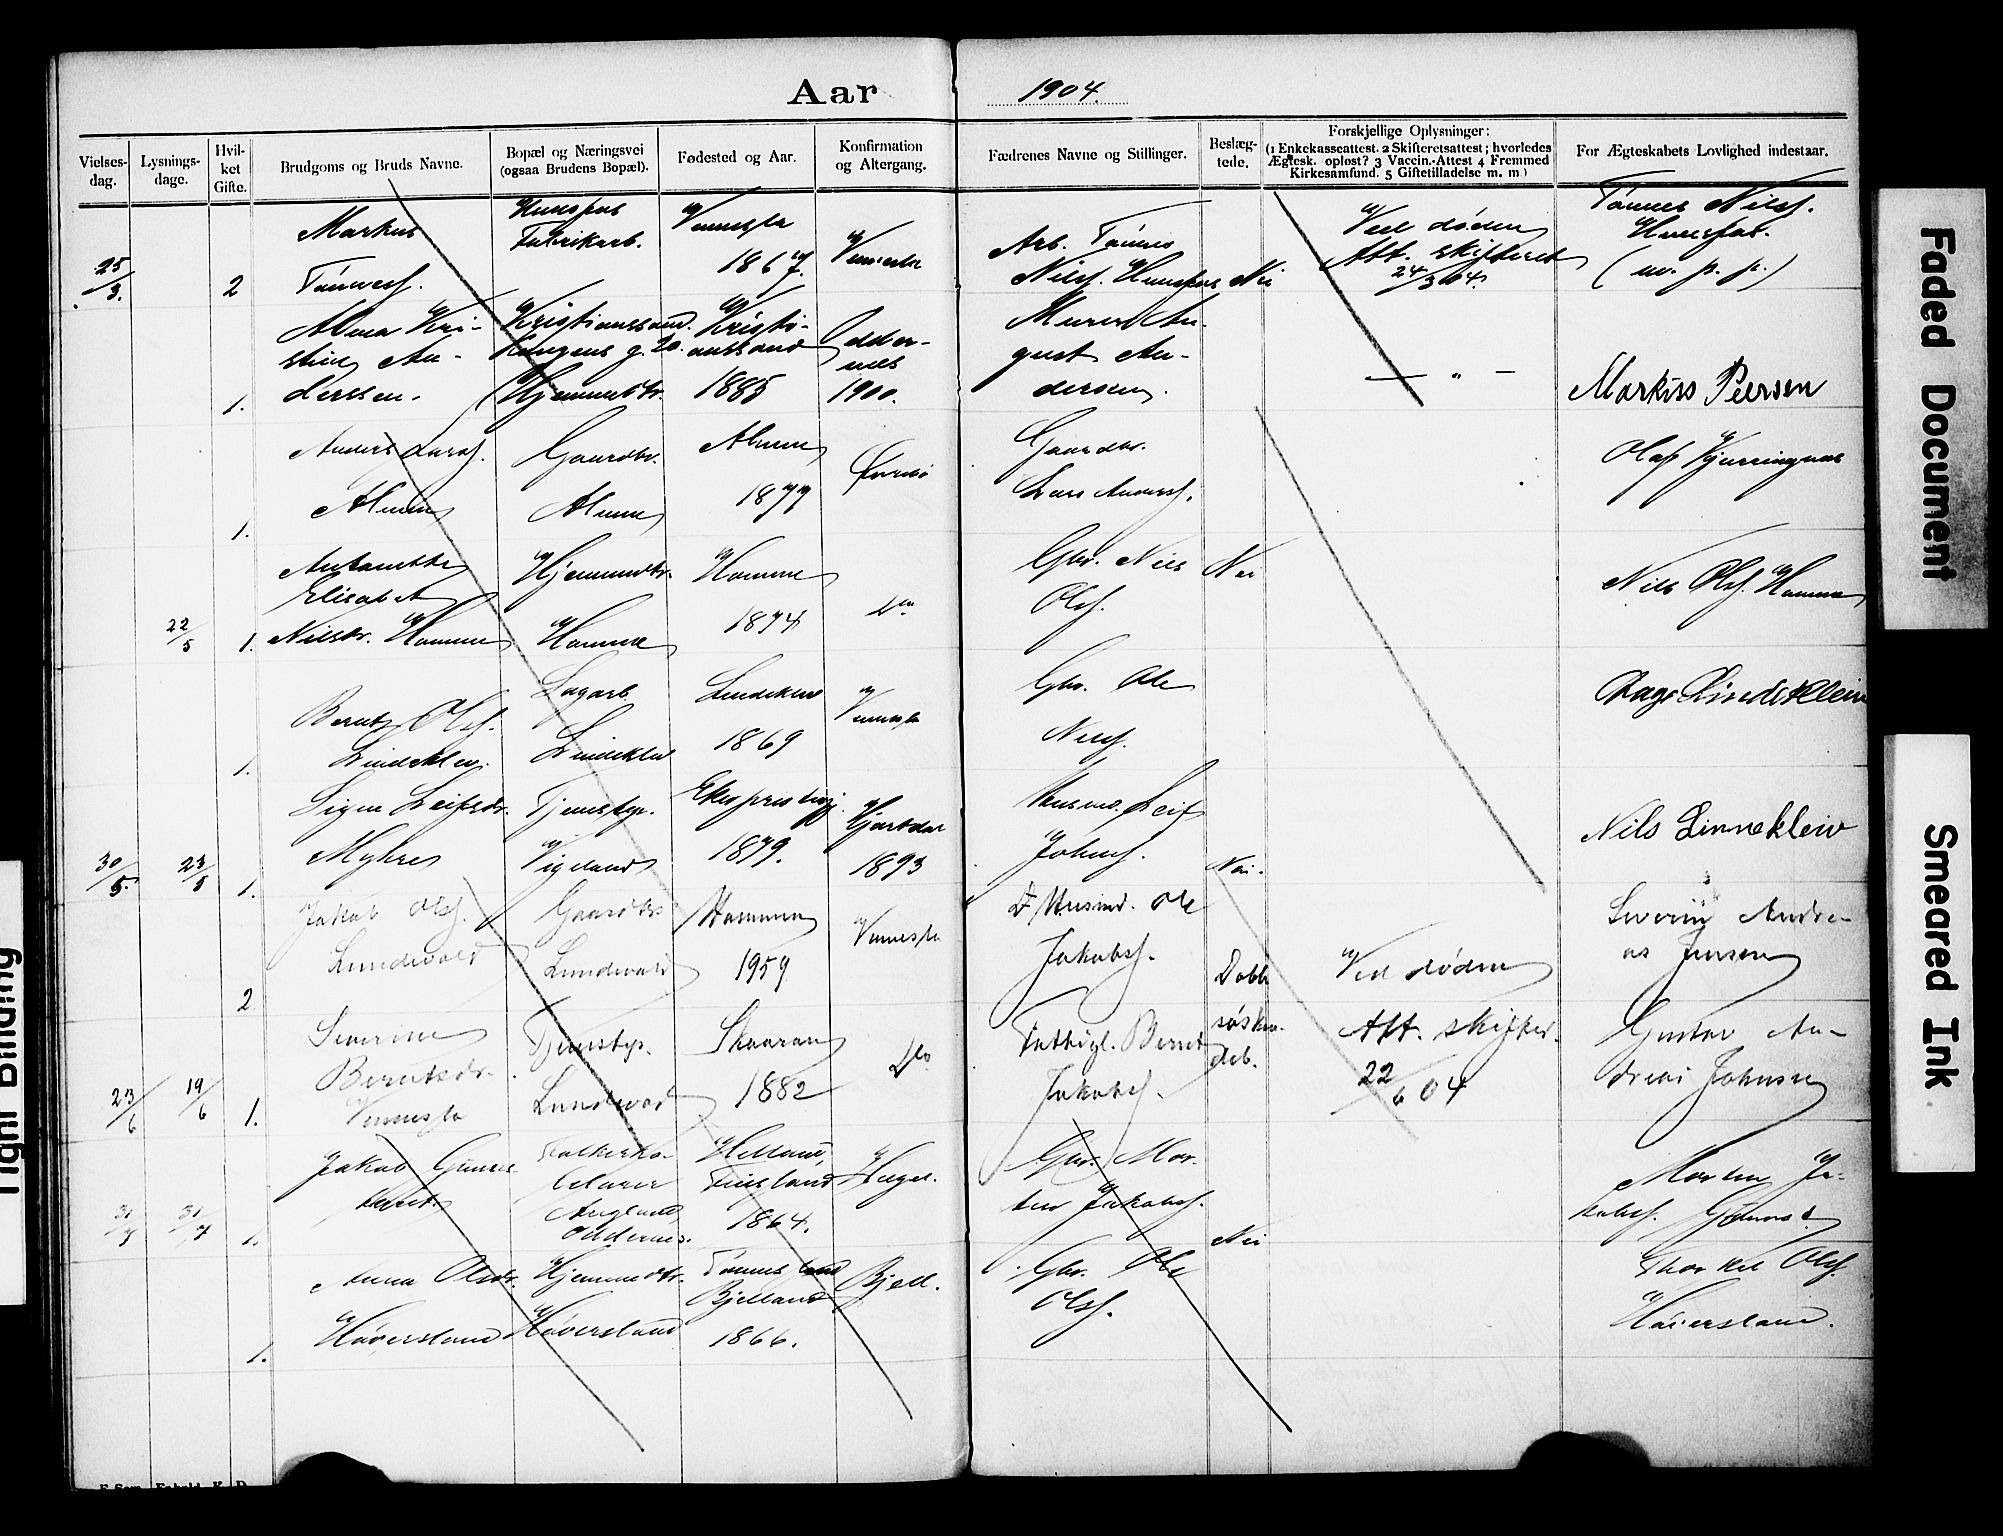 Aar 1904.
Vielses-dag. Lysnings-dage. Hvil-ket Gifte. Brudgoms og Bruds Navne. Bopæl og Næringsvei (ogsaa Brudens Bopæl). Fødested og Aar. Konfirmation og Altergang. Fædrenes Navne og Stillinger. Beslæg-tede. Forskjellige Oplysninger: (1 Enkekasseattest. 2 Skifteretsattest; hvorledes Ægtesk. opløst? 3 Vaccin.-Attest 4 Fremmed Kirkesamfund. 5 Giftetilladelse m. m.) For Ægteskabets Lovlighed indestaar.
25/3. 2
Markus
Tønnesf.
Hunsfos
Fabrikarb.
Vennesla
1867.
Vennesla
Arb. Tønnes
Nilsf. Hunsfos
Nei
Ved døden
Att. skifteret
24/3 04.
Tønnes Nilsf.
Hunsfos.
1.
Alma Kri-
stine An-
derssen.
Kristianssand.
Kongens g. 20.
Hjemmedtr.
Kristi-
anssand
1885
Odder-
nes
1900.
Murer Au-
gust An-
dersen.
— " —
Markus Peersen
1.
Anders Larsf.
Gaardbr.
1877
Gaardbr.
Lars Andersf.
Olaf
22/5 1.
Elisabet
Nilsdr. Homme
Hjemmedtr.
Homme
Homme
1874
do
Gbr. Nils
Olsf.
Nei
Nils Olsf. Homme
1.
Bernt Olsf.
Lindeklev.
Sagarb.
Lindeklev
Lindeklev
1869
Vennesla
Gbr. Ole
Nilsf.
Aage Lindekleiv
30/5. 23/5 1.
Signe Leifsdr.
Myhre
Tjenstep.
Vigeland
1879.
Hjartdal
1893
Husmd. Leif
Johnsf.
Nei.
Nils Linnekleiv
2
Jakob Olsf.
Lundevold
Gaardbr.
Lundevold
Hommen
1959
Vennesla
Husmd. Ole
Jakobsf.
Dobb.
Ved døden
Severin Andre-
as Jensen
23/6 19/6 1.
Severine
Berntsdr.
Vennesla
Tjenstep.
Lundevold
Skaaran
1882
Do
Bernt
Jakobsf.
søsken-
deb.
Att. skifter.
22/6 04
Gustav An-
dreas Johnsen
31/7 31/7 1.
Jakob
Augland,
Oddernes.
Helland,
Finsland
1864.
Gbr. Mor-
ten Jakobsf.
Nei
Morten Ja-
kobsf.
1.
Anna Olsdr.
Høversland
Hjemmedtr.
Høversland
Bjelland
1866.
Bjell.
Gbr. Ole
Olsf.
Thorkel Olsf.
Høiersland.
Faded Document
Smeared Ink
Tight Binding